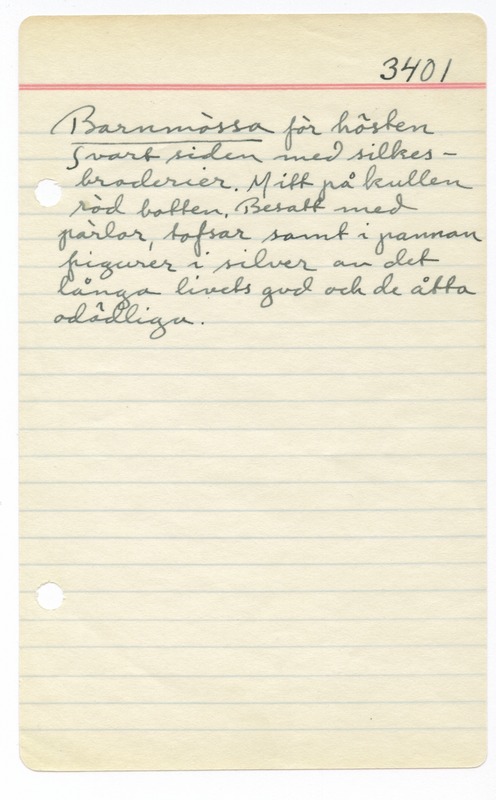 3401
Barnmössa för hösten
Svart siden med silkes-
broderier. Mitt på kullen
röd botten. Besatt med
pärlor, tofsar samt i pannan
figurer i silver av det
långa livets gud och de åtta
odödliga.